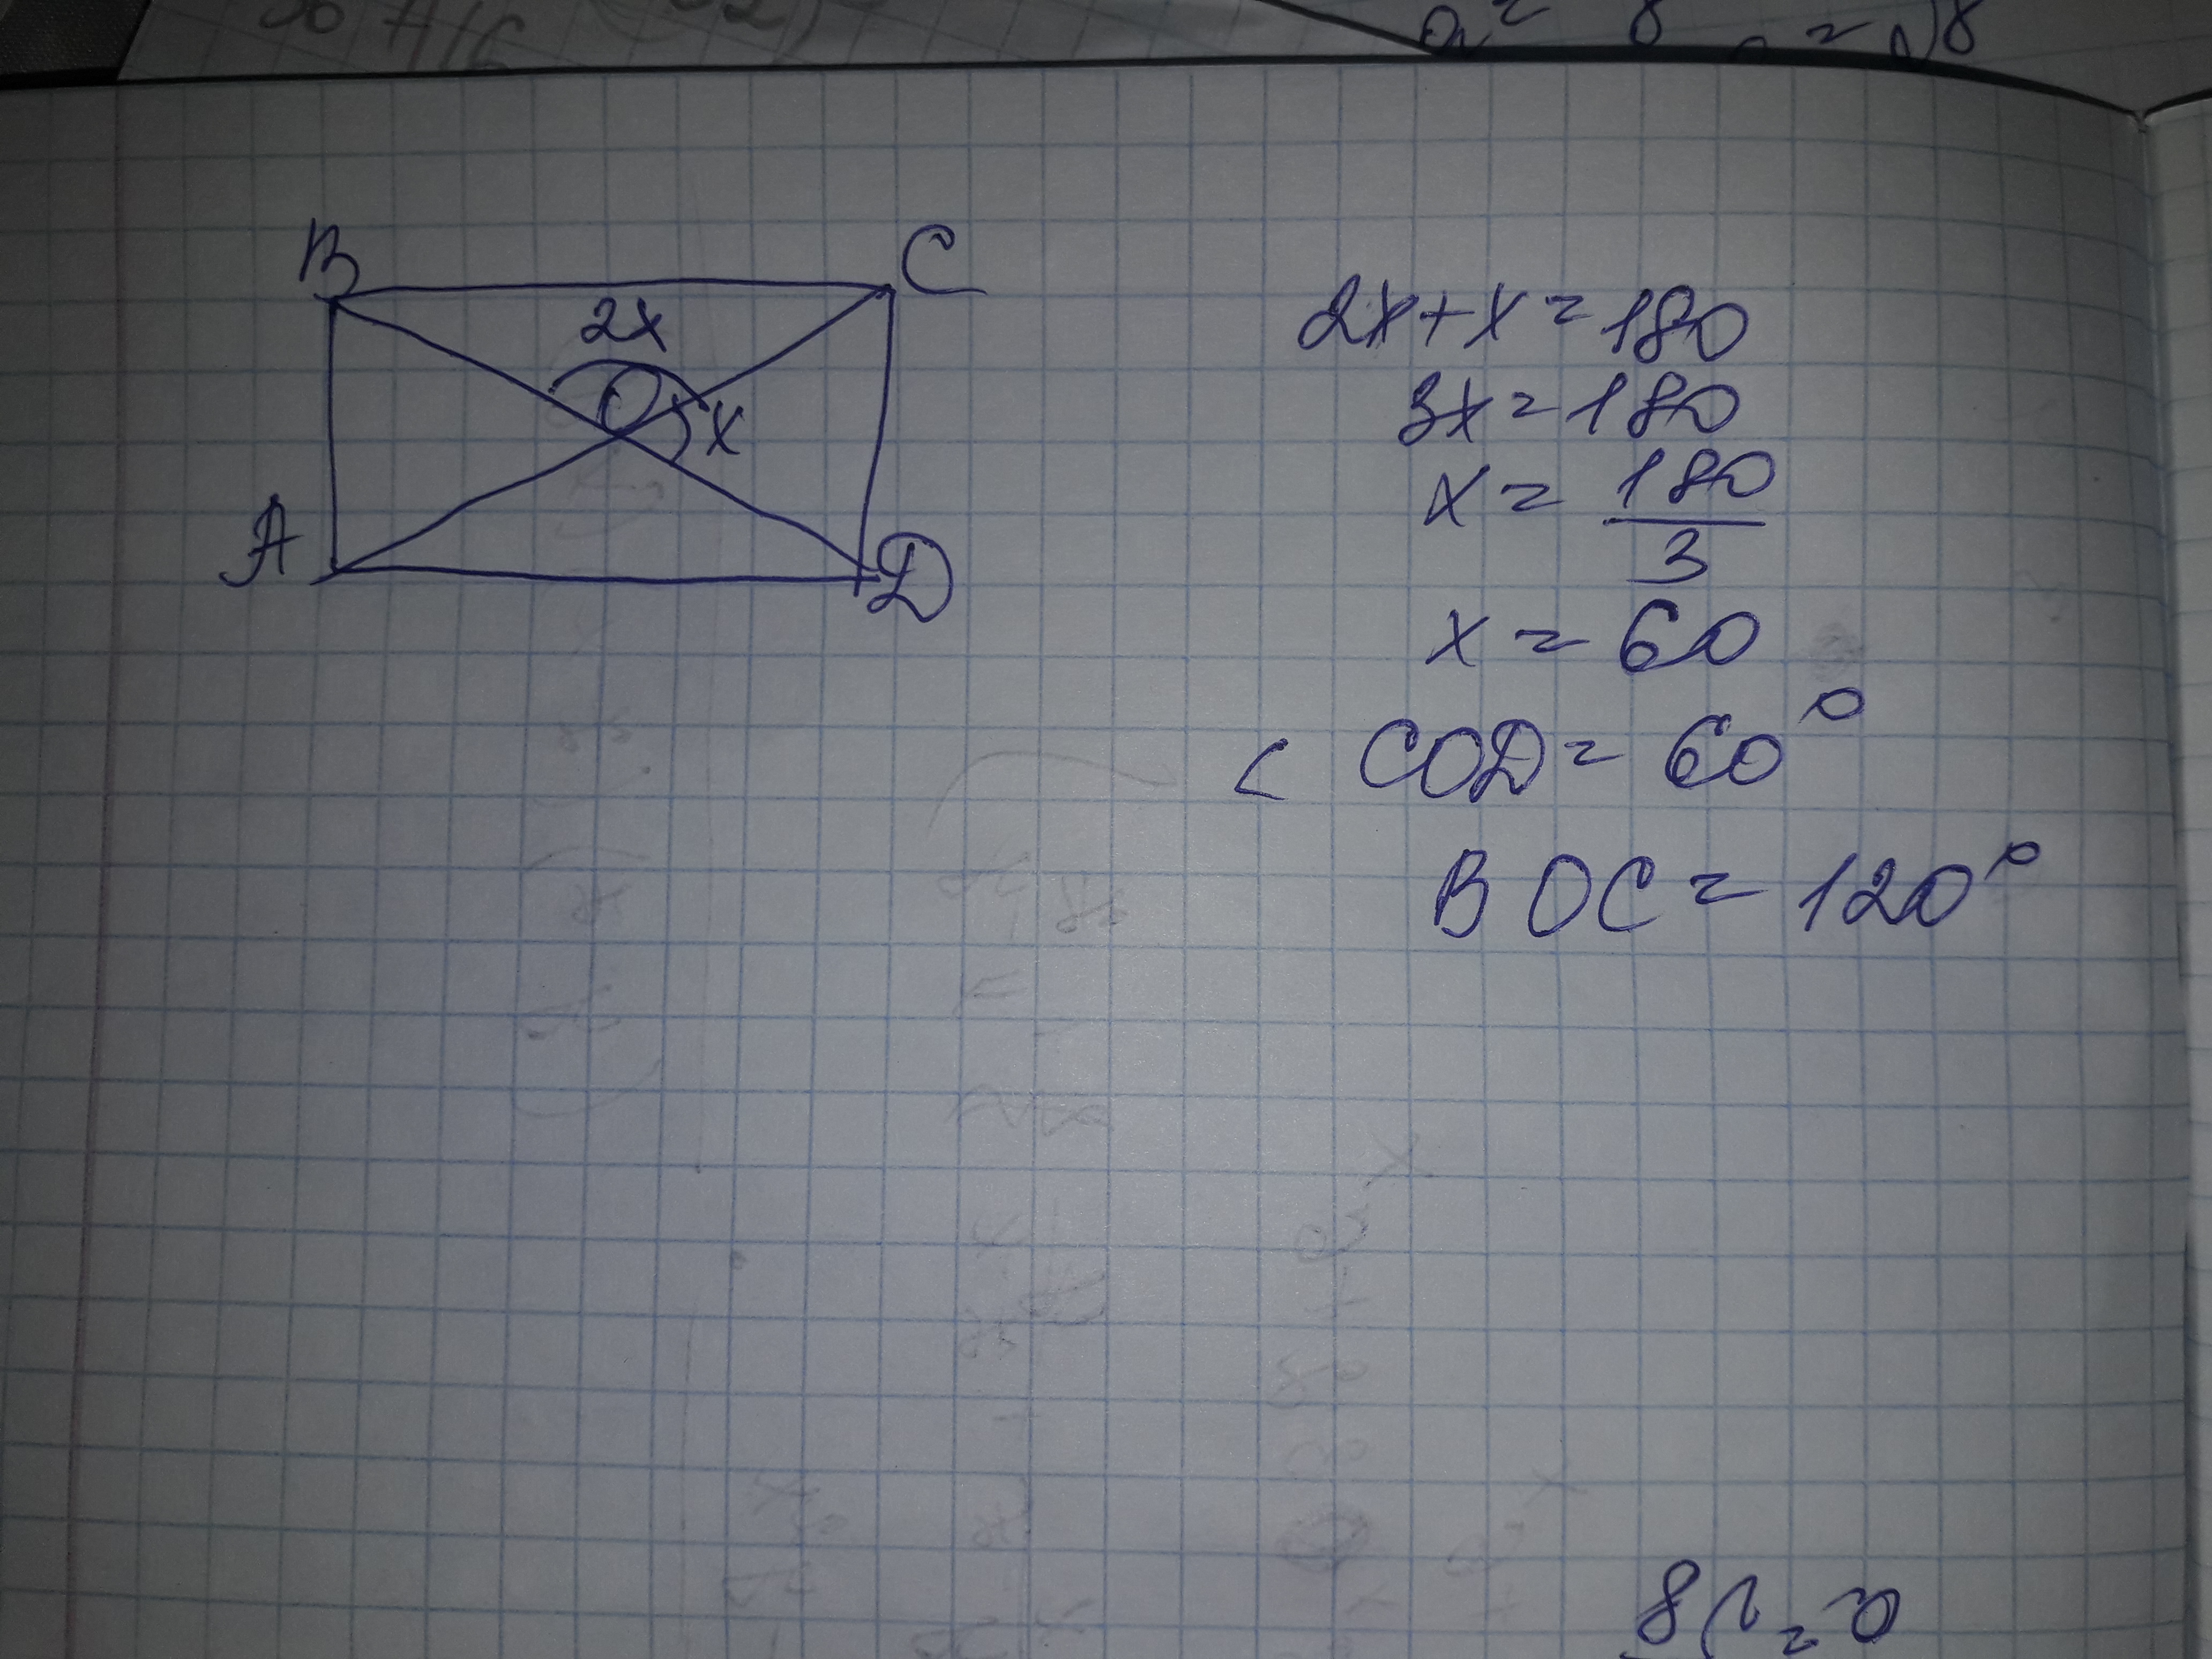 a² = 8
= √8
B
C
2x
O
x
A
D
2x + x = 180
3x = 180
x = 180/3
x = 60
< COD = 60°
BOC = 120°